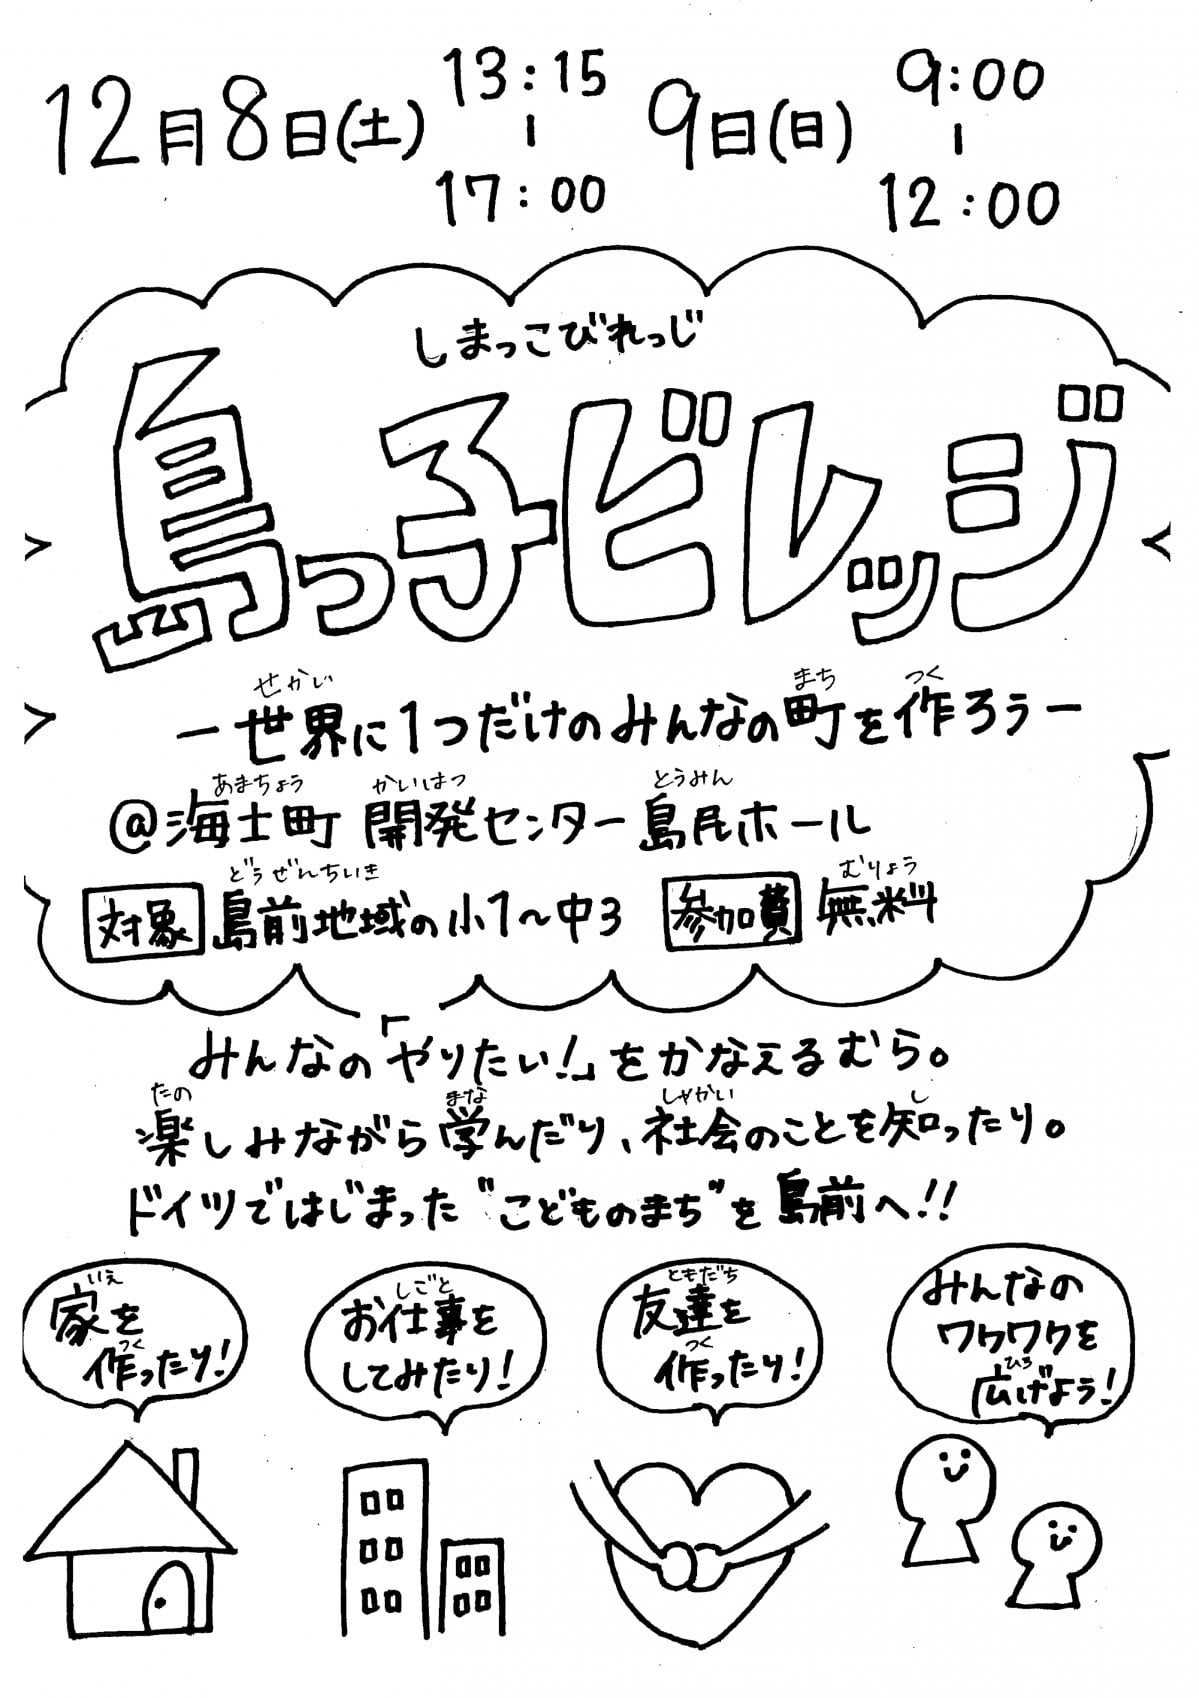 12月8日(土) 13:15 - 17:00 9日(日) 9:00 - 12:00
しまっこびれっじ
島っ子ビレッジ
せかい まち つく
-世界に1つだけのみんなの町を作ろう-
あまちょう かいはつ とうみん
@海士町 開発センター島民ホール
どうぜんちいき むりょう
対象 島前地域の小1~中3 参加費 無料
みんなの「やりたい!」をかなえるむら。
たの まな しゃかい し
楽しみながら学んだり、社会のことを知ったり。
ドイツではじまった"こどものまち"を島前へ!!
いえ
家を
つく
作ったり!
しごと
お仕事を
してみたり!
ともだち
友達を
つく
作ったり!
みんなの
ワクワクを
ひろ
広げよう!